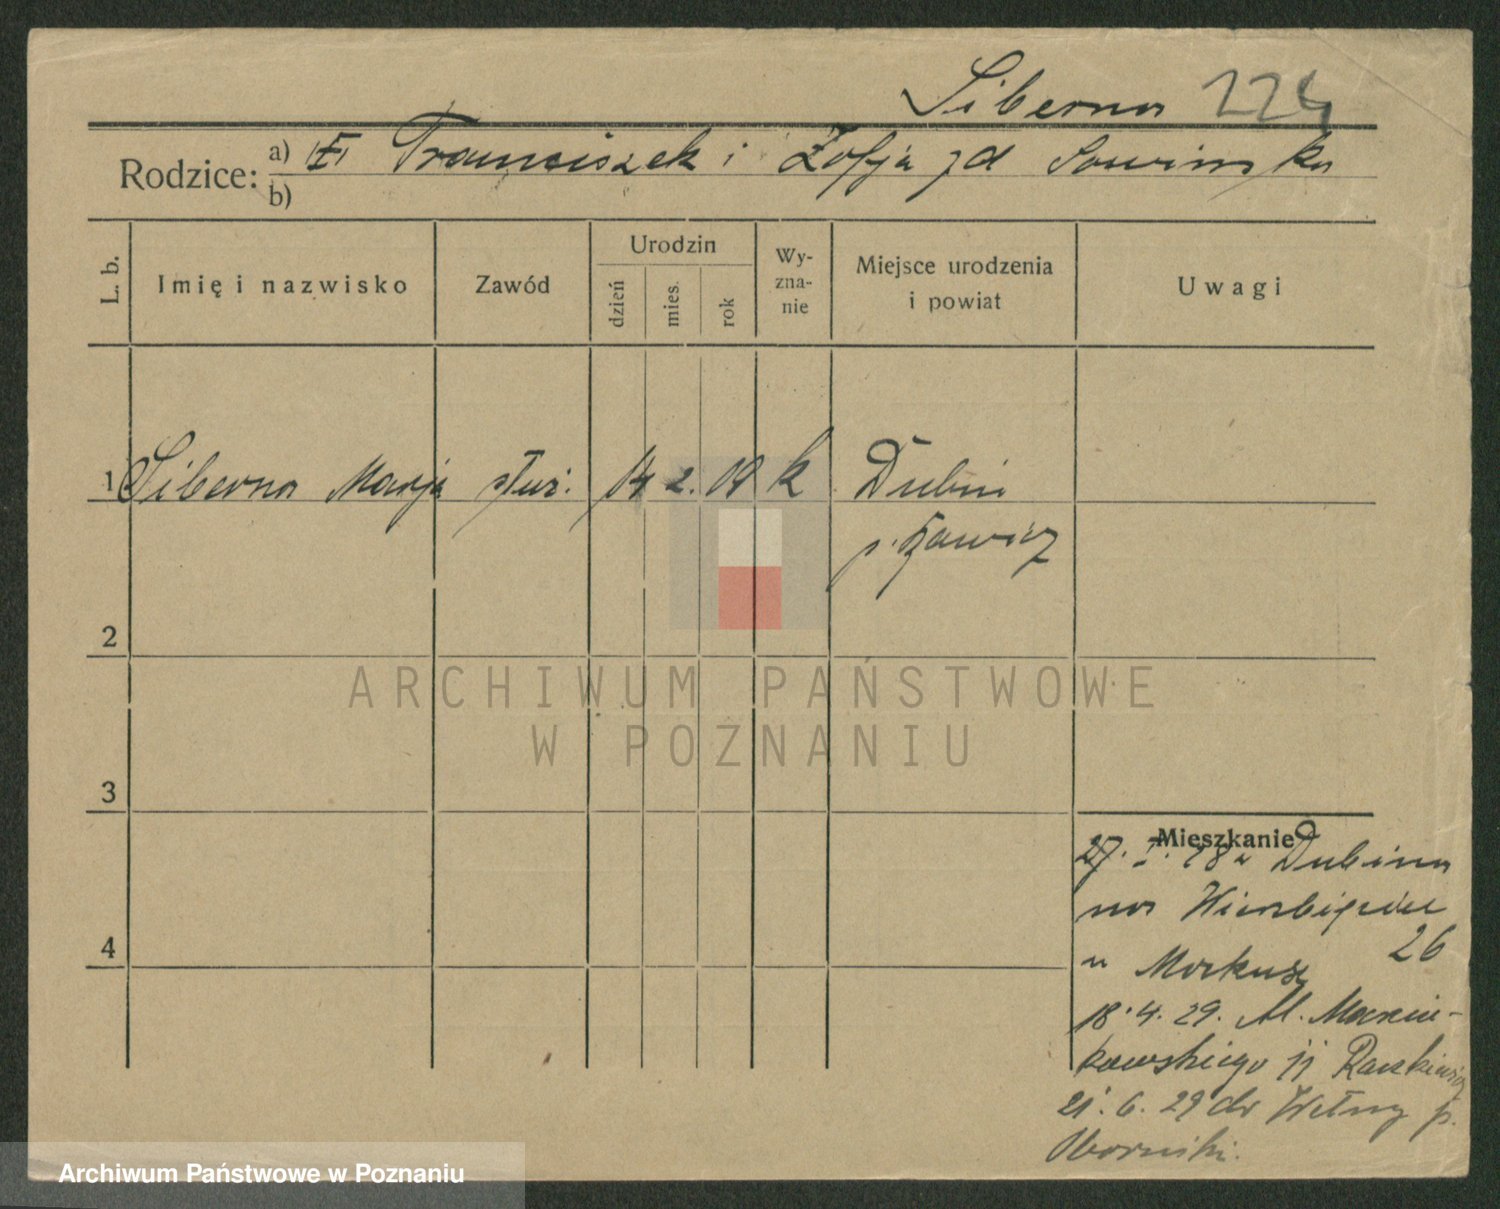 Siberna 224
Rodzice: a) Franciszek i Zofja zd Sowinska
b)
L. b. Imię i nazwisko Zawód Urodzin dzień mies. rok Wy-zna-nie Miejsce urodzenia i powiat Uwagi
1 Siberna Marja służ. 14 2. 09 k Dubin
p. Rawicz
2
3
4
Mieszkanie
27. I. 28 z Dubina
na Wierzbięcice
26
u Markusz
18.4.29. Al. Marcin-
kowskiego Raszkiewicz
21.6.29 do Wełny p.
Obornicki.
ARCHIWUM PAŃSTWOWE
W POZNANIU
Archiwum Państwowe w Poznaniu